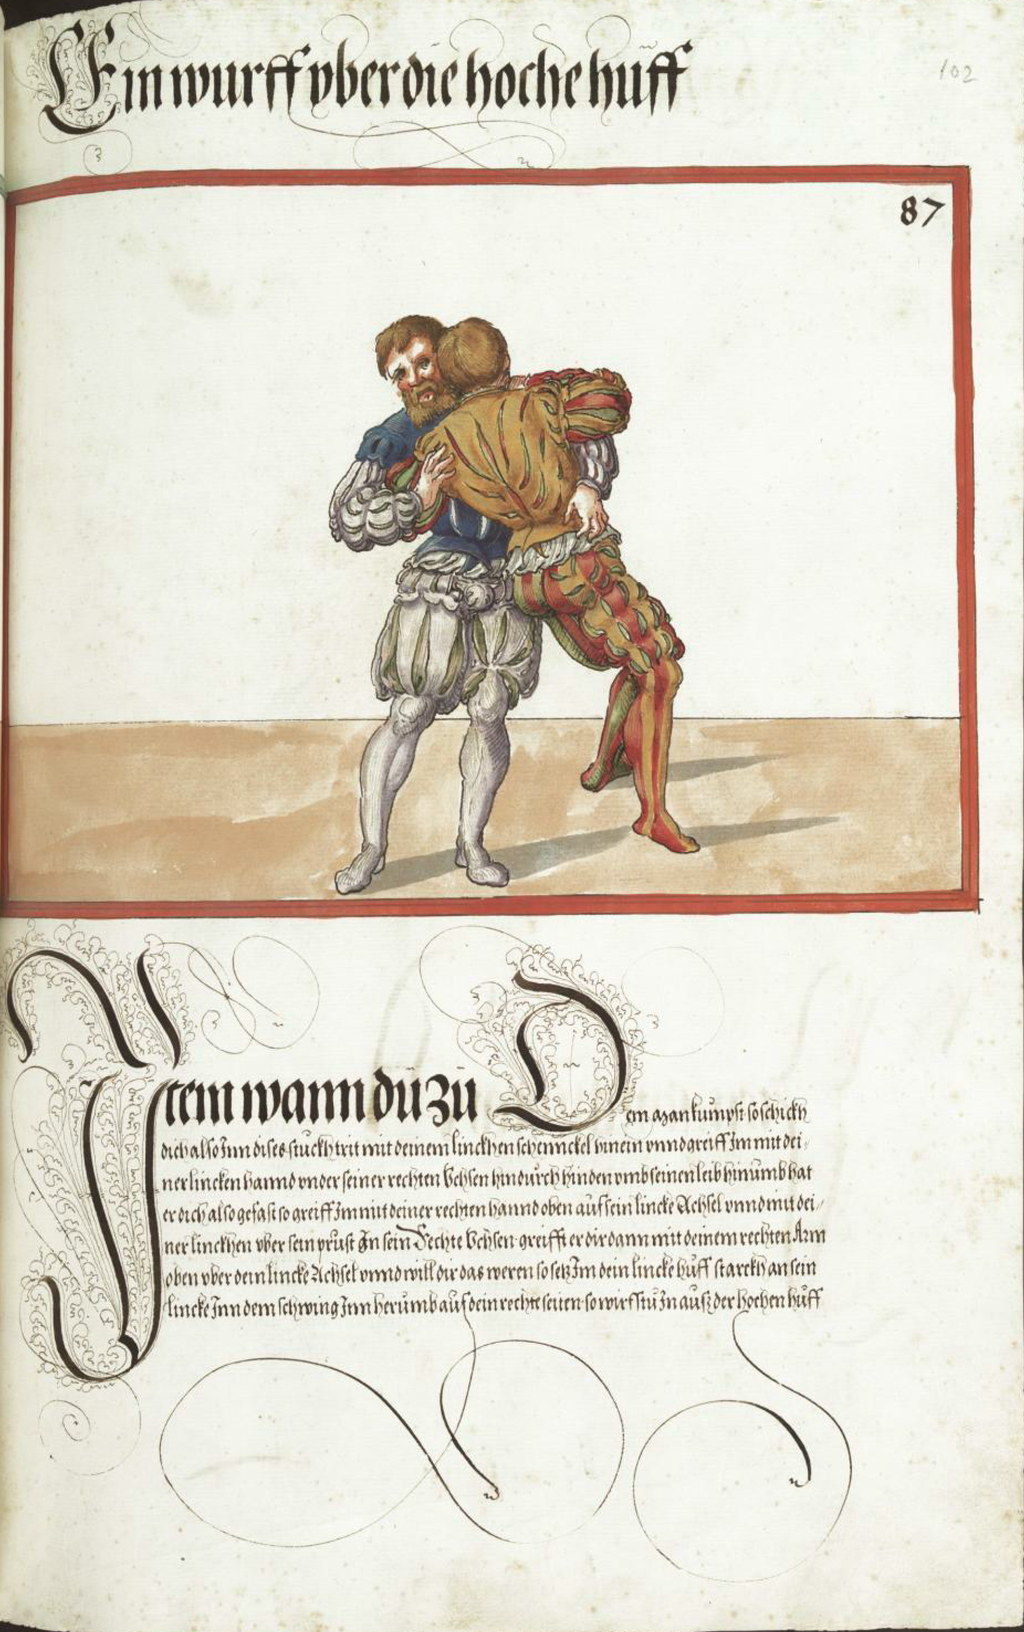 Ein wurff vber die hoche hüff
102
87
Item wann dü zü Dem man kumpst so schickh
dich also Inn dises stuckh trit mit deinem linckhen schennckel hinein vnnd greiff Im mit dei-
ner lincken hannd vnder seiner rechten Vchsen hindurch hinden vmb seinen leib hinumb hat
er dich also gefast so greiff Im mit deiner rechten hannd oben auf sein lincke Achsel vnnd mit dei-
ner linckhen vber sein prust In sein Rechte Vchsen greifft er dir dann mit deinem rechten Arm
oben vber dein lincke Achsel vnnd will dir das weren so setz Im dein lincke hüff starckh an sein
lincke Inn dem schwing Inn herumb auf dein rechte seiten so wirfstu In aus der hochen hüff